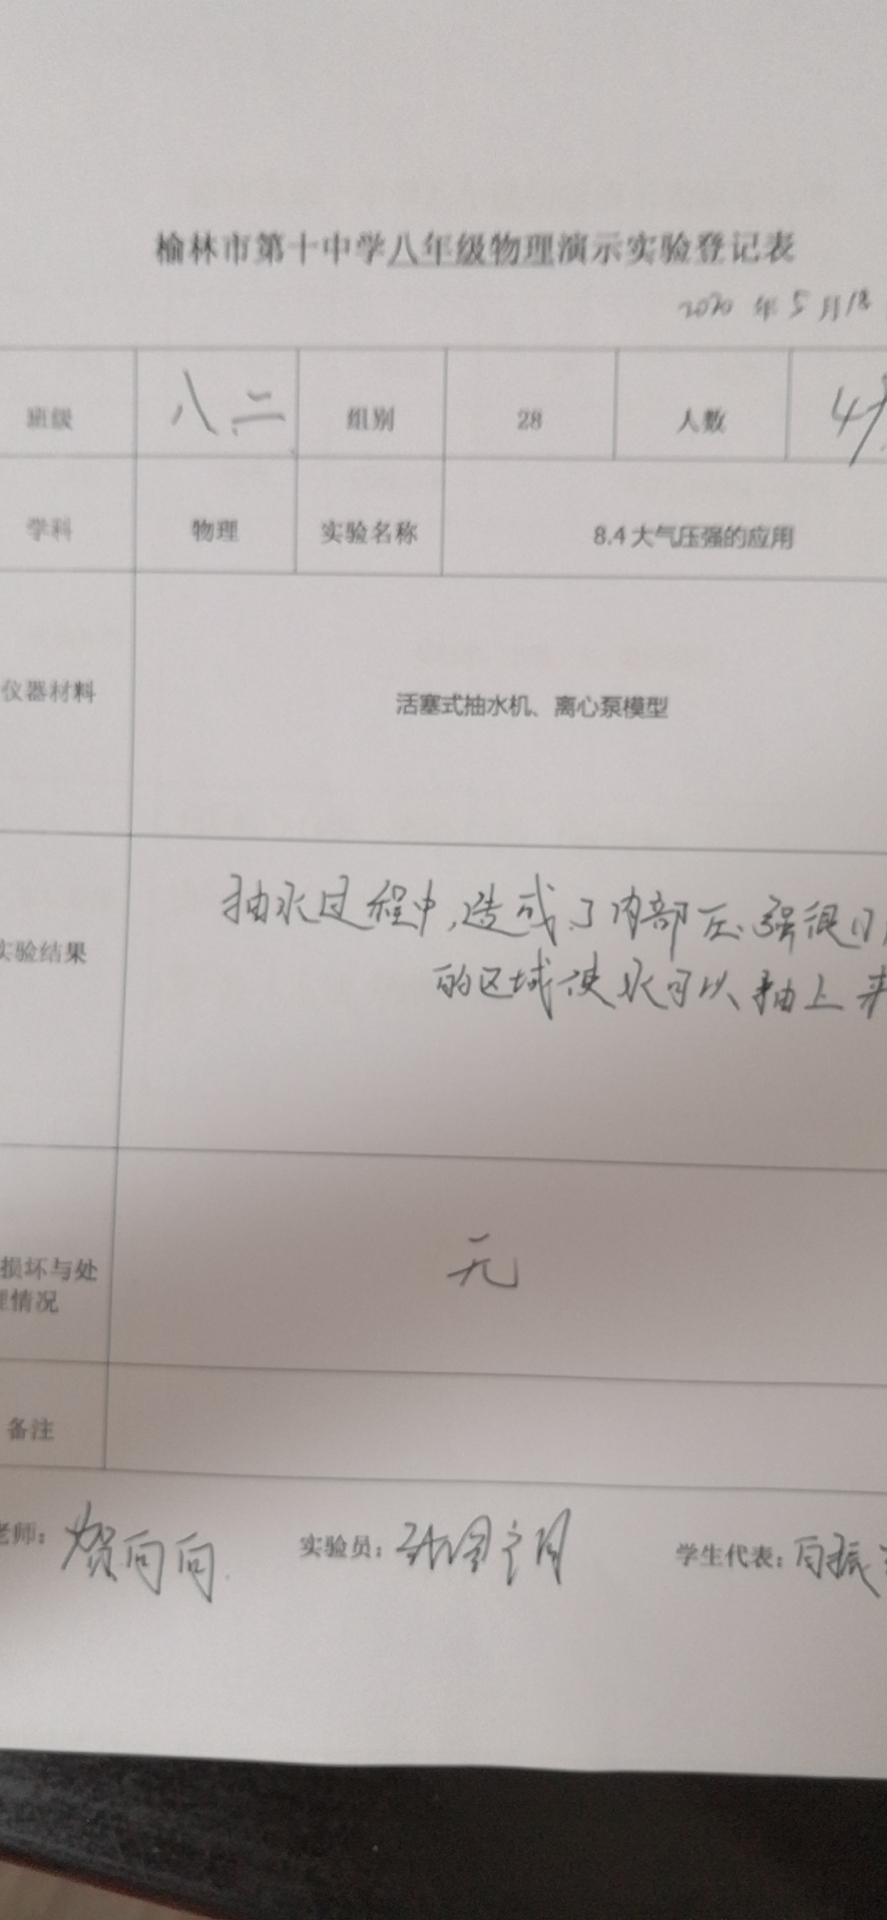 榆林市第十中学八年级物理演示实验登记表
2020 年 5 月 18
班级 八.二 组别 28 人数
学科 物理 实验名称 8.4 大气压强的应用
仪器材料 活塞式抽水机、离心泵模型
实验结果 抽水过程中,造成了内部压强很小
的区域使水可以抽上来
损坏与处
理情况 无
备注
老师: 贺向向 实验员: 学生代表: 白振